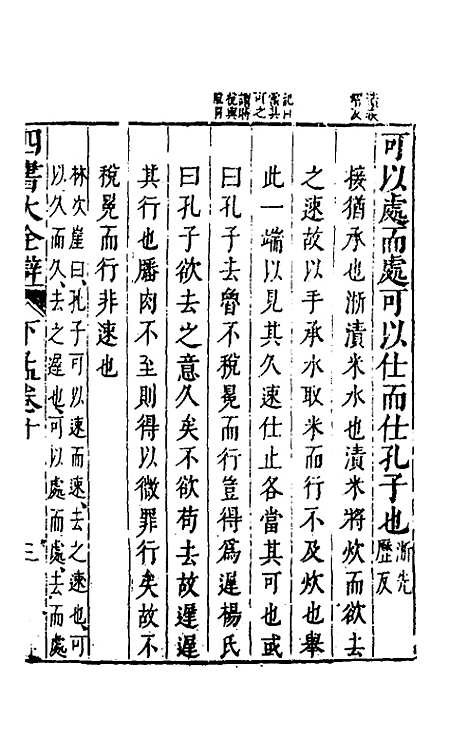 可以處而處可以仕而仕孔子也淅先歷反
接猶承也淅漬米水也漬米將炊而欲去
之速故以手承水取米而行不及炊也舉
此一端以見其久速仕止各當其可也或
曰孔子去魯不稅冕而行豈得爲遲楊氏
曰孔子欲去之意久矣不欲苟去故遲遲
其行也膰肉不至則得以微罪行矣故不
稅冕而行非速也
林次崖曰孔子可以速而速去之速也可
以久而久去之遲也可以處而處去而處
四書大全辯 下孟卷十 三